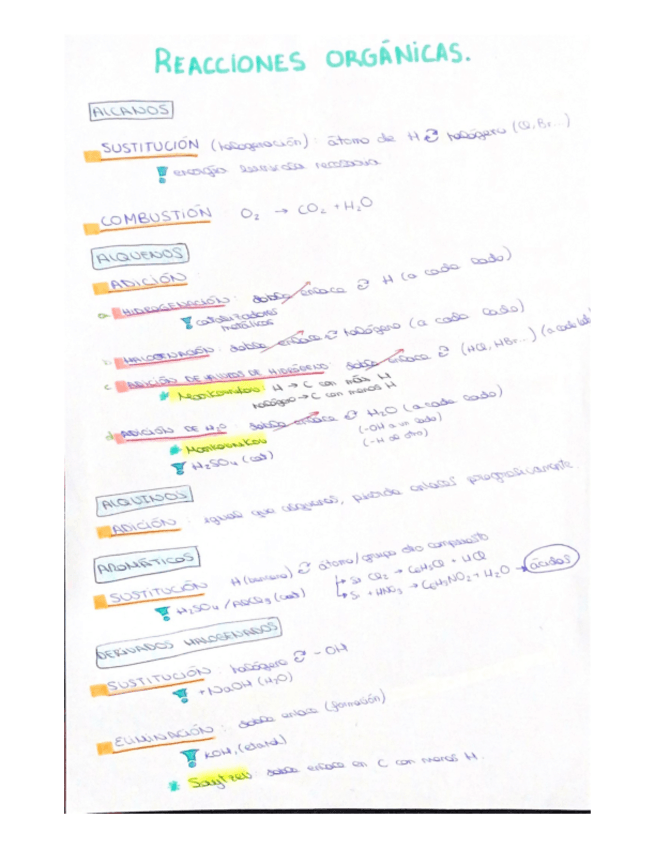 REACCIONES ORGÁNICAS.
ALCANOS
SUSTITUCIÓN (halogenación): átomo de H halógeno (Cl, Br...)
energía luminosa necesaria
COMBUSTIÓN : O₂ → CO₂ + H₂O
ALQUENOS
ADICIÓN
a. HIDROGENACIÓN: doble enlace H (a cada lado)
catalizadores metálicos
b. HALOGENACIÓN: doble enlace halógeno (a cada lado)
c. ADICIÓN DE HALUROS DE HIDRÓGENO: doble enlace (HCl, HBr...) (a cada lado
* Markovnikov: H → C con más H
halógeno → C con menos H
d. ADICIÓN DE H₂O: doble enlace H₂O (a cada lado)
(-OH a un lado)
* Markovnikov
(-H al otro)
H₂SO₄ (cat)
ALQUINOS
ADICIÓN : igual que alquenos, pierde enlaces progresivamente.
AROMÁTICOS
SUSTITUCIÓN H (benceno) átomo/grupo otro compuesto
H₂SO₄ / AlCl₃ (cat)
Si Cl₂ → C₆H₅Cl + HCl
Si + HNO₃ → C₆H₅NO₂ + H₂O → ácidos
DERIVADOS HALOGENADOS
SUSTITUCIÓN: halógeno - OH
+ NaOH (H₂O)
ELIMINACIÓN : doble enlace (formación)
KOH, (etanol)
* Saytzev: doble enlace en C con menos H.